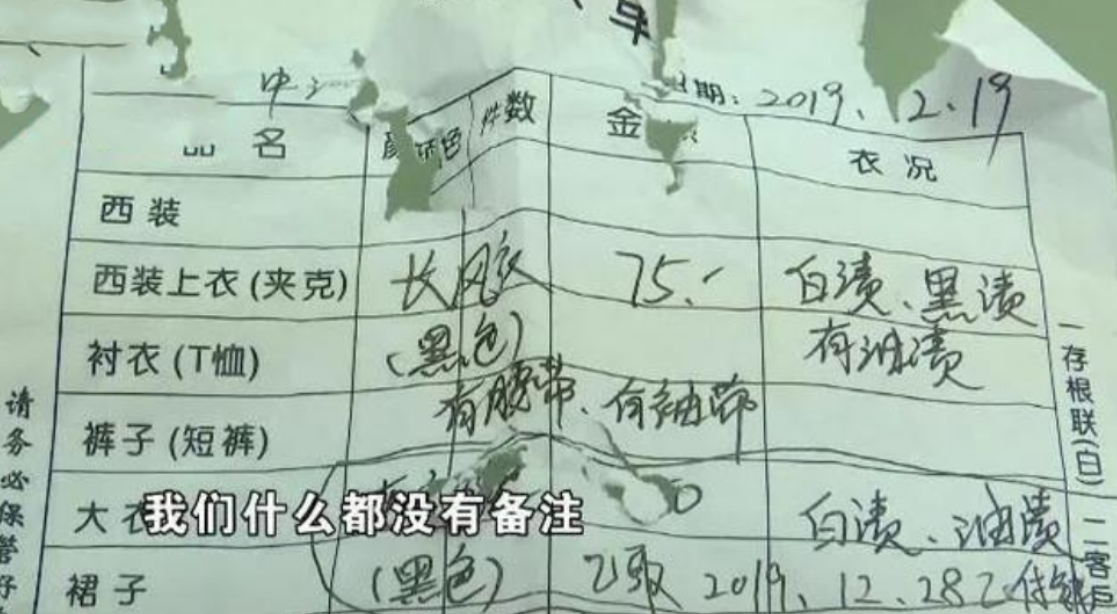 单
期：2019、2.19
品名 颜色 件数 金 衣况
西装
西装上衣(夹克) 长风衣 75.- 白渍、黑渍
衬衣(T恤) (黑色) 有油渍
有腰带、有袖带
裤子(短裤)
大衣 白渍、油渍
我们什么都没有备注
裙子 (黑色) 已取 2019、12.28
请务必保管好
一存根联(白)
二客户